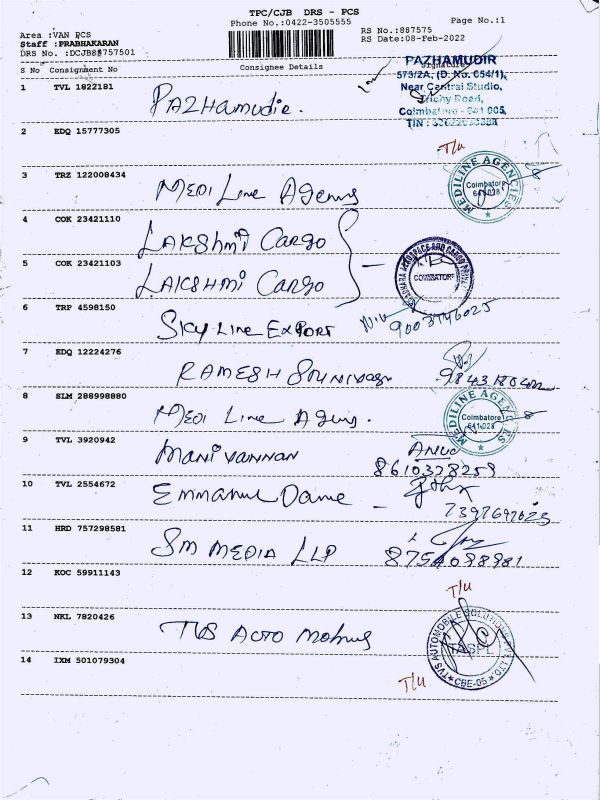 TPC/CJB DRS - PCS
Phone No.:0422-3505555 Page No.:1
Area :VAN PCS RS No.:887575
Staff :PRABHAKARAN RS Date:08-Feb-2022
DRS No. :DCJB88757501
S No Consignment No Consignee Details Signature
PAZHAMUDIR
573/2A, (D. No. 654/1),
Near Central Studio,
Trichy Road,
Coimbatore - 641 005,
TIN :
1 TVL 1822181 Pazhamudir.
2 EDQ 15777305
T/U
3 TRZ 122008434 Medi Line Agencies
MEDILINE AGENCIES
Coimbatore
641 028
4 COK 23421110 Lakshmi Cargo
5 COK 23421103 Lakshmi Cargo
COIMBATORE
6 TRP 4598150 Sky Line Export
9003746025
7 EDQ 12224276 Ramesh Srinivasan
8 SLM 288998880 Medi Line Agencies.
MEDILINE AGENCIES
Coimbatore
641 028
9 TVL 3920942 Manivannan
8610328259
10 TVL 2554672 Emmanuel Dame
7397697623
11 HRD 757298581 SM MEDIA LLP
8754098981
12 KOC 59911143
T/U
13 NKL 7820426 TVS Auto Mobiles
TVS AUTOMOBILE SOLUTIONS PVT LTD.
TASPL
CBE-05
14 IXM 501079304
T/U